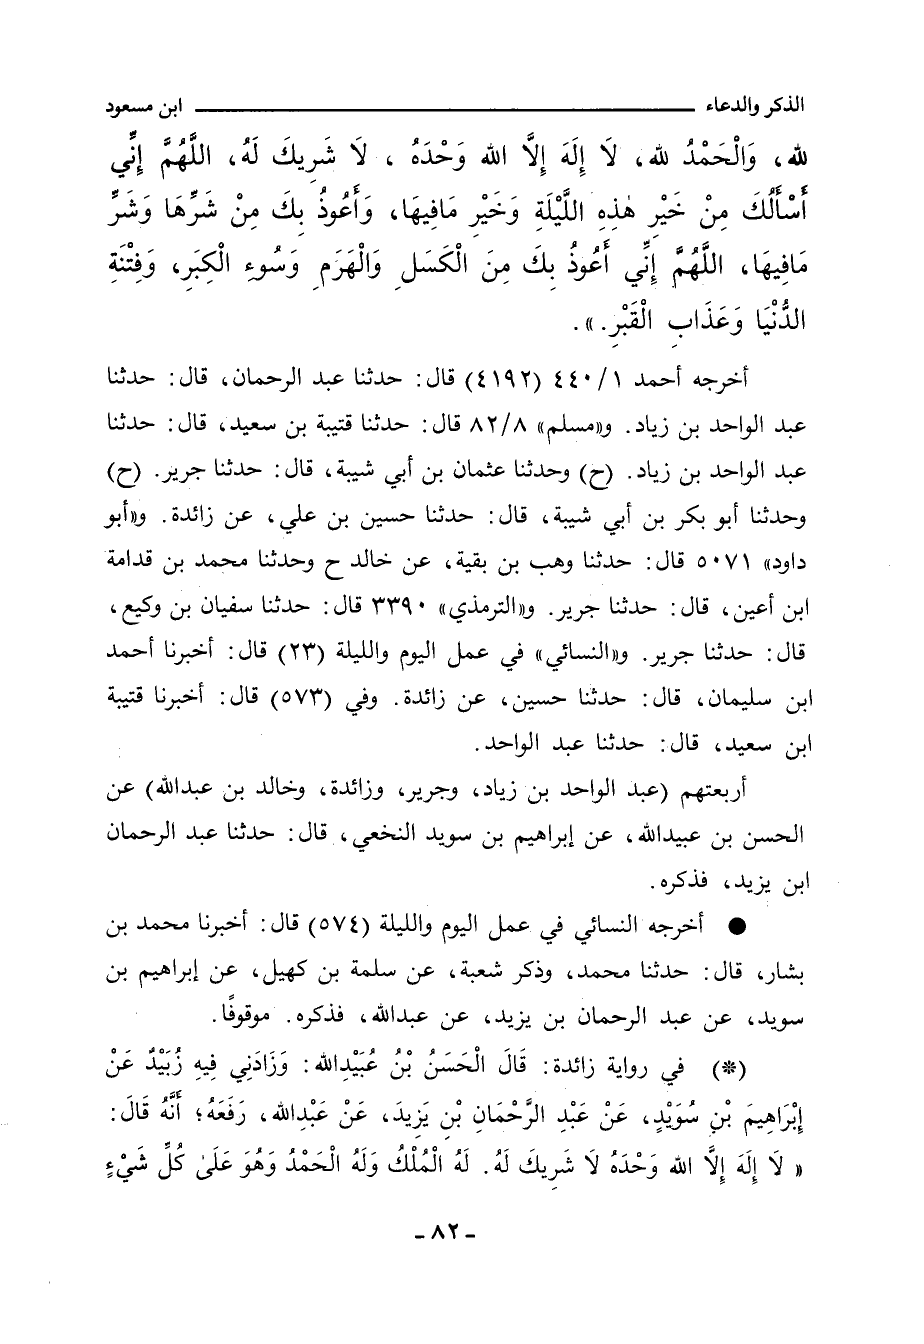 الذكر والدعاء ــــــــــــــــــ ابن مسعود
لله، وَالْحَمْدُ لله، لَا إِلَهَ إِلَّا الله وَحْدَهُ ، لَا شَرِيكَ لَهُ، اللَّهُمَّ إِنِّي
أَسْأَلُكَ مِنْ خَيْرِ هٰذِهِ اللَّيْلَةِ وَخَيْرِ مَافِيهَا، وَأَعُوذُ بِكَ مِنْ شَرِّهَا وَشَرِّ
مَافِيهَا، اللَّهُمَّ إِنِّي أَعُوذُ بِكَ مِنَ الْكَسَلِ وَالْهَرَمِ وَسُوءِ الْكِبَرِ، وَفِتْنَةِ
الدُّنْيَا وَعَذَابِ الْقَبْرِ.».
أخرجه أحمد ٤٤٠/١ (٤١٩٢) قال: حدثنا عبد الرحمان، قال: حدثنا
عبد الواحد بن زياد. و«مسلم» ٨٢/٨ قال: حدثنا قتيبة بن سعيد، قال: حدثنا
عبد الواحد بن زياد. (ح) وحدثنا عثمان بن أبي شيبة، قال: حدثنا جرير. (ح)
وحدثنا أبو بكر بن أبي شيبة، قال: حدثنا حسين بن علي، عن زائدة. و«أبو
داود» ٥٠٧١ قال: حدثنا وهب بن بقية، عن خالد ح وحدثنا محمد بن قدامة
ابن أعين، قال: حدثنا جرير. و«الترمذي» ٣٣٩٠ قال: حدثنا سفيان بن وكيع،
قال: حدثنا جرير. و«النسائي» في عمل اليوم والليلة (٢٣) قال: أخبرنا أحمد
ابن سليمان، قال: حدثنا حسين، عن زائدة. وفي (٥٧٣) قال: أخبرنا قتيبة
ابن سعيد، قال: حدثنا عبد الواحد.
أربعتهم (عبد الواحد بن زياد، وجرير، وزائدة، وخالد بن عبدالله) عن
الحسن بن عبيدالله، عن إبراهيم بن سويد النخعي، قال: حدثنا عبد الرحمان
ابن يزيد، فذكره.
● أخرجه النسائي في عمل اليوم والليلة (٥٧٤) قال: أخبرنا محمد بن
بشار، قال: حدثنا محمد، وذكر شعبة، عن سلمة بن كهيل، عن إبراهيم بن
سويد، عن عبد الرحمان بن يزيد، عن عبدالله، فذكره. موقوفًا.
(*) في رواية زائدة: قَالَ الْحَسَنُ بْنُ عُبَيْدِالله: وَزَادَنِي فِيهِ زُبَيْدٌ عَنْ
إِبْرَاهِيمَ بْنِ سُوَيْدٍ، عَنْ عَبْدِ الرَّحْمَانِ بْنِ يَزِيدَ، عَنْ عَبْدِالله، رَفَعَهُ؛ أَنَّهُ قَالَ:
« لَا إِلَهَ إِلَّا الله وَحْدَهُ لَا شَرِيكَ لَهُ. لَهُ الْمُلْكُ وَلَهُ الْحَمْدُ وَهُوَ عَلَىٰ كُلِّ شَيْءٍ
- ٨٢ -